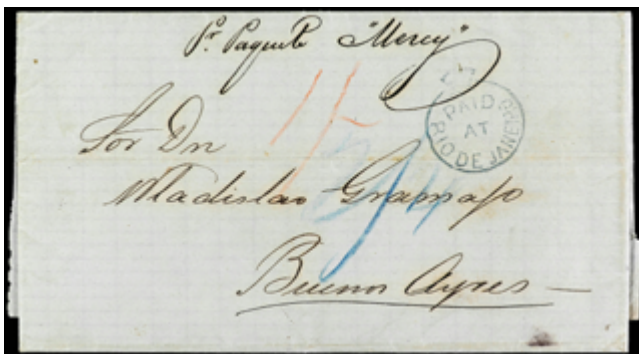 Pr. Paquete "Mersey"
PAID
AT
RIO DE JANEIRO
Sor Dn
Wladislao Gramajo
Buenos Ayres